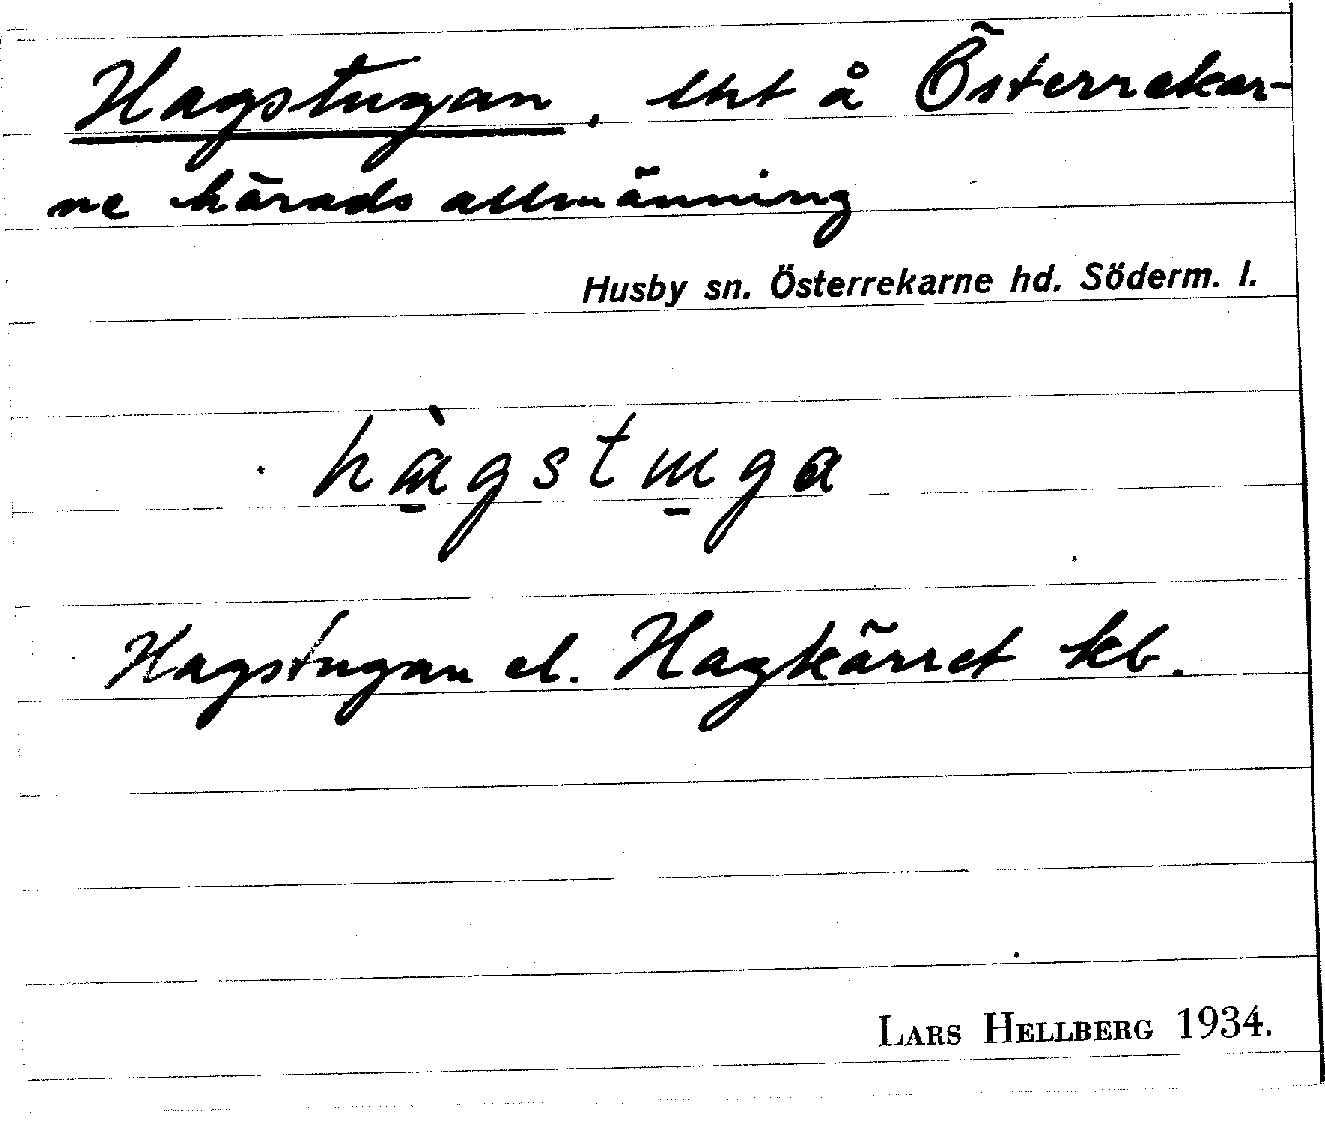 Hagstugan, lht å Österrekar-
ne härads allmänning
Husby sn. Österrekarne hd. Söderm. l.
hàgstuga
Hagstugan el. Hagkärret kb.
LARS HELLBERG 1934.